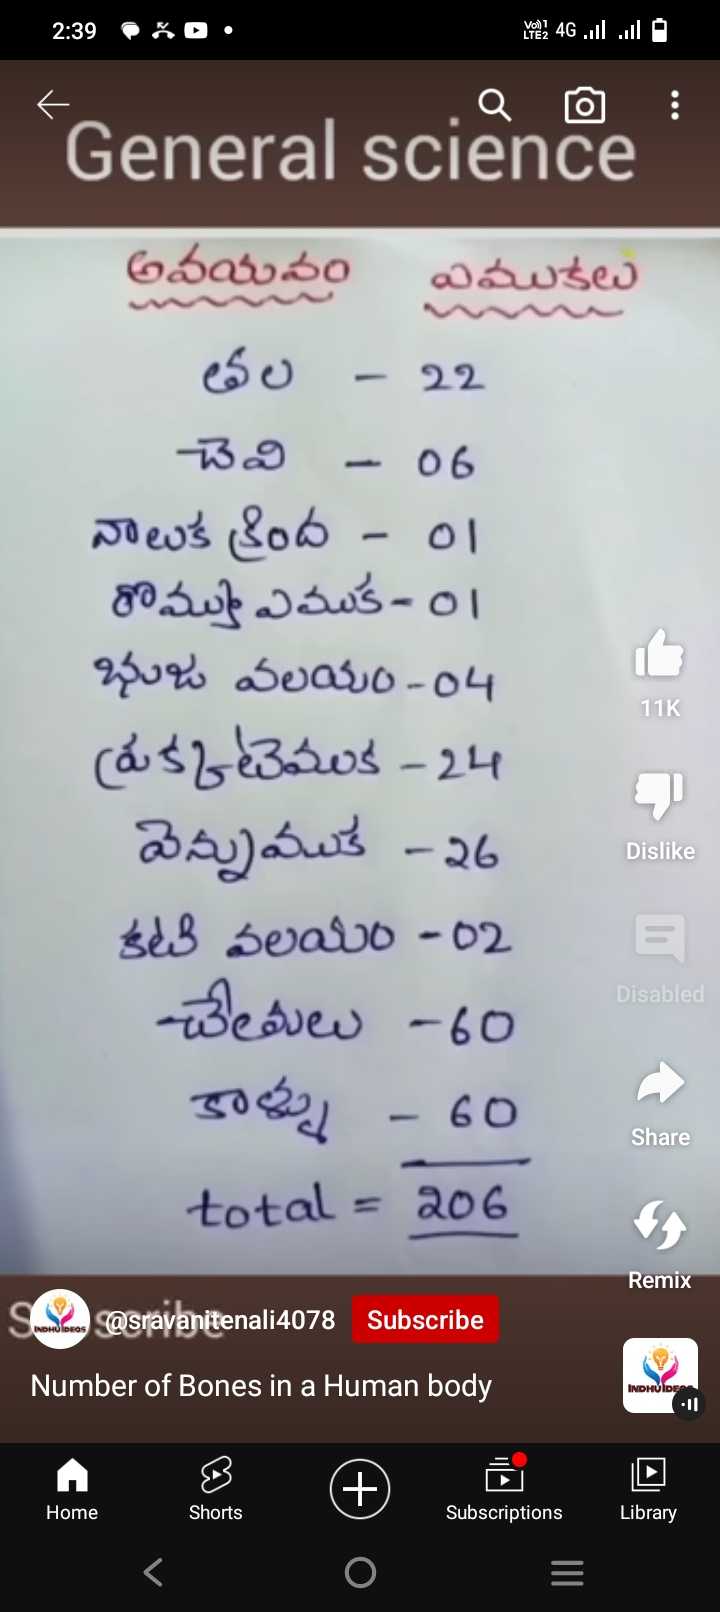 2:39
Vo)) 1 LTE2 4G
General science
అవయవం ఎముకలు
తల - 22
చెవి - 06
నాలుక క్రింద - 01
రొమ్ము ఎముక - 01
భుజ వలయం - 04
ప్రక్కటెముక - 24
వెన్నుముక - 26
కటి వలయం - 02
చేతులు - 60
కాళ్ళు - 60
total = 206
11K
Dislike
Disabled
Share
Remix
Subscribe
INDHU IDEOS
@sravanitenali4078 Subscribe
Number of Bones in a Human body
INDHU IDEOS
Home Shorts Subscriptions Library